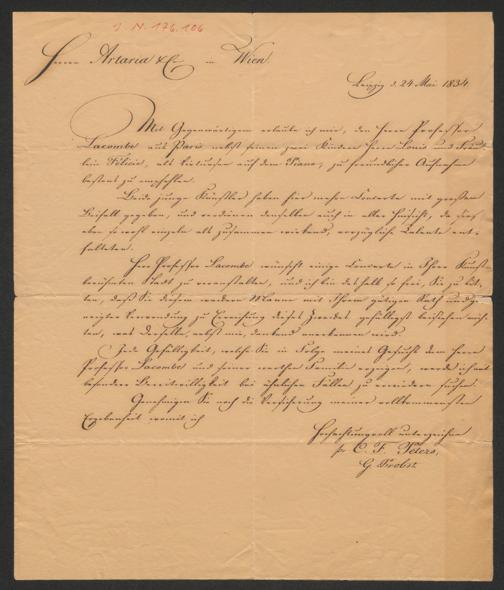 I. N. 176.106
Herrn Artaria & Co in Wien.
Leipzig d. 24 Mai 1834.
Mit Gegenwärtigem erlaube ich mir, den Herrn Professor
Lacombe aus Paris nebst seinen zwei Kindern Herrn Louis und Fräu-
lein Felicie, als Virtuosen auf dem Piano, zu freundlicher Aufnahme
bestens zu empfehlen.
Beide junge Künstler haben hier mehre Concerte mit großem
Beifall gegeben, und verdienen denselben auch in aller Hinsicht, da sie,
eben so wohl einzeln als zusammen wirkend, vorzügliche Talente ent-
falteten.
Herr Professor Lacombe wünscht einige Concerte in Ihrer Kunst-
berühmten Stadt zu veranstalten, und ich bin deshalb so frei, Sie zu bit-
ten, daß Sie diesem werthen Manne mit Ihrem gütigen Rath und ge-
neigter Verwendung zu Erreichung dieses Zweckes gefälligst beistehen möch-
ten, was Derselbe, nebst mir, dankend anerkennen wird.
Jede Gefälligkeit, welche Sie in Folge meines Gesuchs dem Herrn
Professor Lacombe und seiner werthen Familie erzeigen, werde ich mit
besonderer Bereitwilligkeit bei ähnlichen Fällen zu erwiedern suchen.
Genehmigen Sie noch die Versicherung meiner vollkommensten
Ergebenheit womit ich
Hochachtungsvoll unterzeichne
pr C. F. Peters,
G Probst.